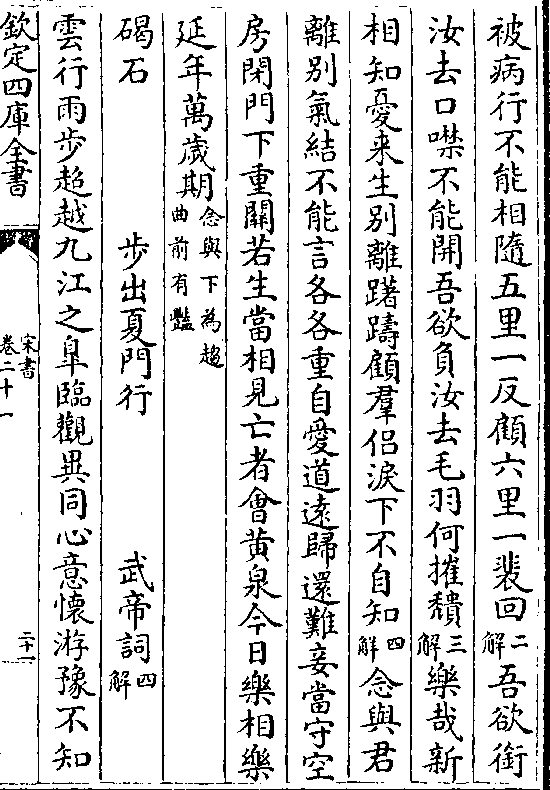 被病行不能相隨五里一反顧六里一裴回二解吾欲銜
汝去口噤不能開吾欲負汝去毛羽何摧頽三解樂哉新
相知憂来生别離躇躊顧羣侣淚下不自知四解念與君
離别氣結不能言各各重自愛道遠歸還難妾當守空
房閉門下重關若生當相見亡者會黄泉今日樂相樂
延年萬歲期念與下為趨曲前有豔
碣石 步出夏門行 武帝詞四解
雲行雨步超越九江之臯臨觀異同心意懷游豫不知
欽定四庫全書
宋書
卷二十一
二十一